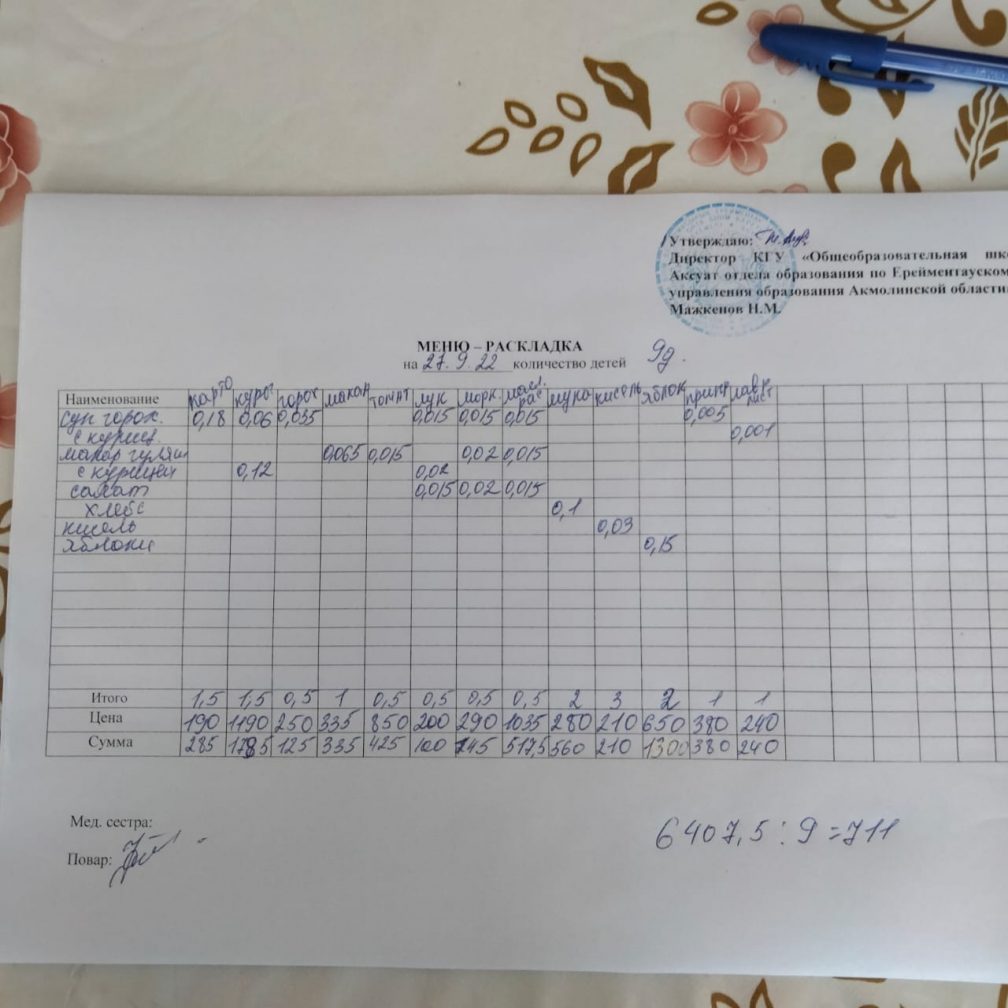 Утверждаю:
Директор КГУ «Общеобразовательная шк
Аксуат отдела образования по Ерейментауском
управления образования Акмолинской области
Мажкенов Н.М.
МЕНЮ – РАСКЛАДКА
на 27.9.22 количество детей 9д.
Наименование карто куры горох макан томат лук морк. масл. рас мука кисель яблок припр лавр. лист
суп горох. 0,18 0,06 0,035 0,015 0,015 0,015 0,005
с куриц. 0,001
макар гуляш 0,065 0,015 0,02 0,015
с курицей 0,12 0,02
салат 0,015 0,02 0,015
хлеб 0,1
кисель 0,03
яблоки 0,15
Итого 1,5 1,5 0,5 1 0,5 0,5 0,5 0,5 2 3 2 1 1
Цена 190 1190 250 335 850 200 290 1035 280 210 650 380 240
Сумма 285 1785 125 335 425 100 145 517,5 560 210 1300 380 240
Мед. сестра:
Повар:
6407,5 : 9 = 711